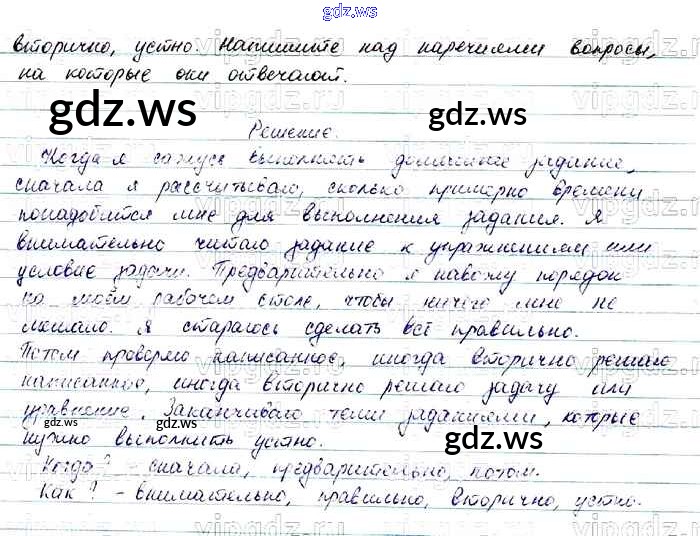 gdz.ws
вторично, устно. Напишите над наречиями вопросы,
на которые они отвечают.
gdz.ws gdz.ws
Решение.
Когда я сажусь выполнять домашнее задание,
сначала я рассчитываю, сколько примерно времени
понадобится мне для выполнения задания. Я
внимательно читаю задание к упражнениям или
условие задачи. Предварительно я навожу порядок
на моём рабочем столе, чтобы ничего мне не
мешало. Я стараюсь сделать всё правильно.
Потом проверяю написанное, иногда вторично решаю
написанное, иногда вторично решаю задачу или
уравнение. Заканчиваю теми заданиями, которые
нужно выполнить устно.
gdz.ws gdz.ws
Когда? - сначала, предварительно, потом.
Как? - внимательно, правильно, вторично, устно.
gdz.ws